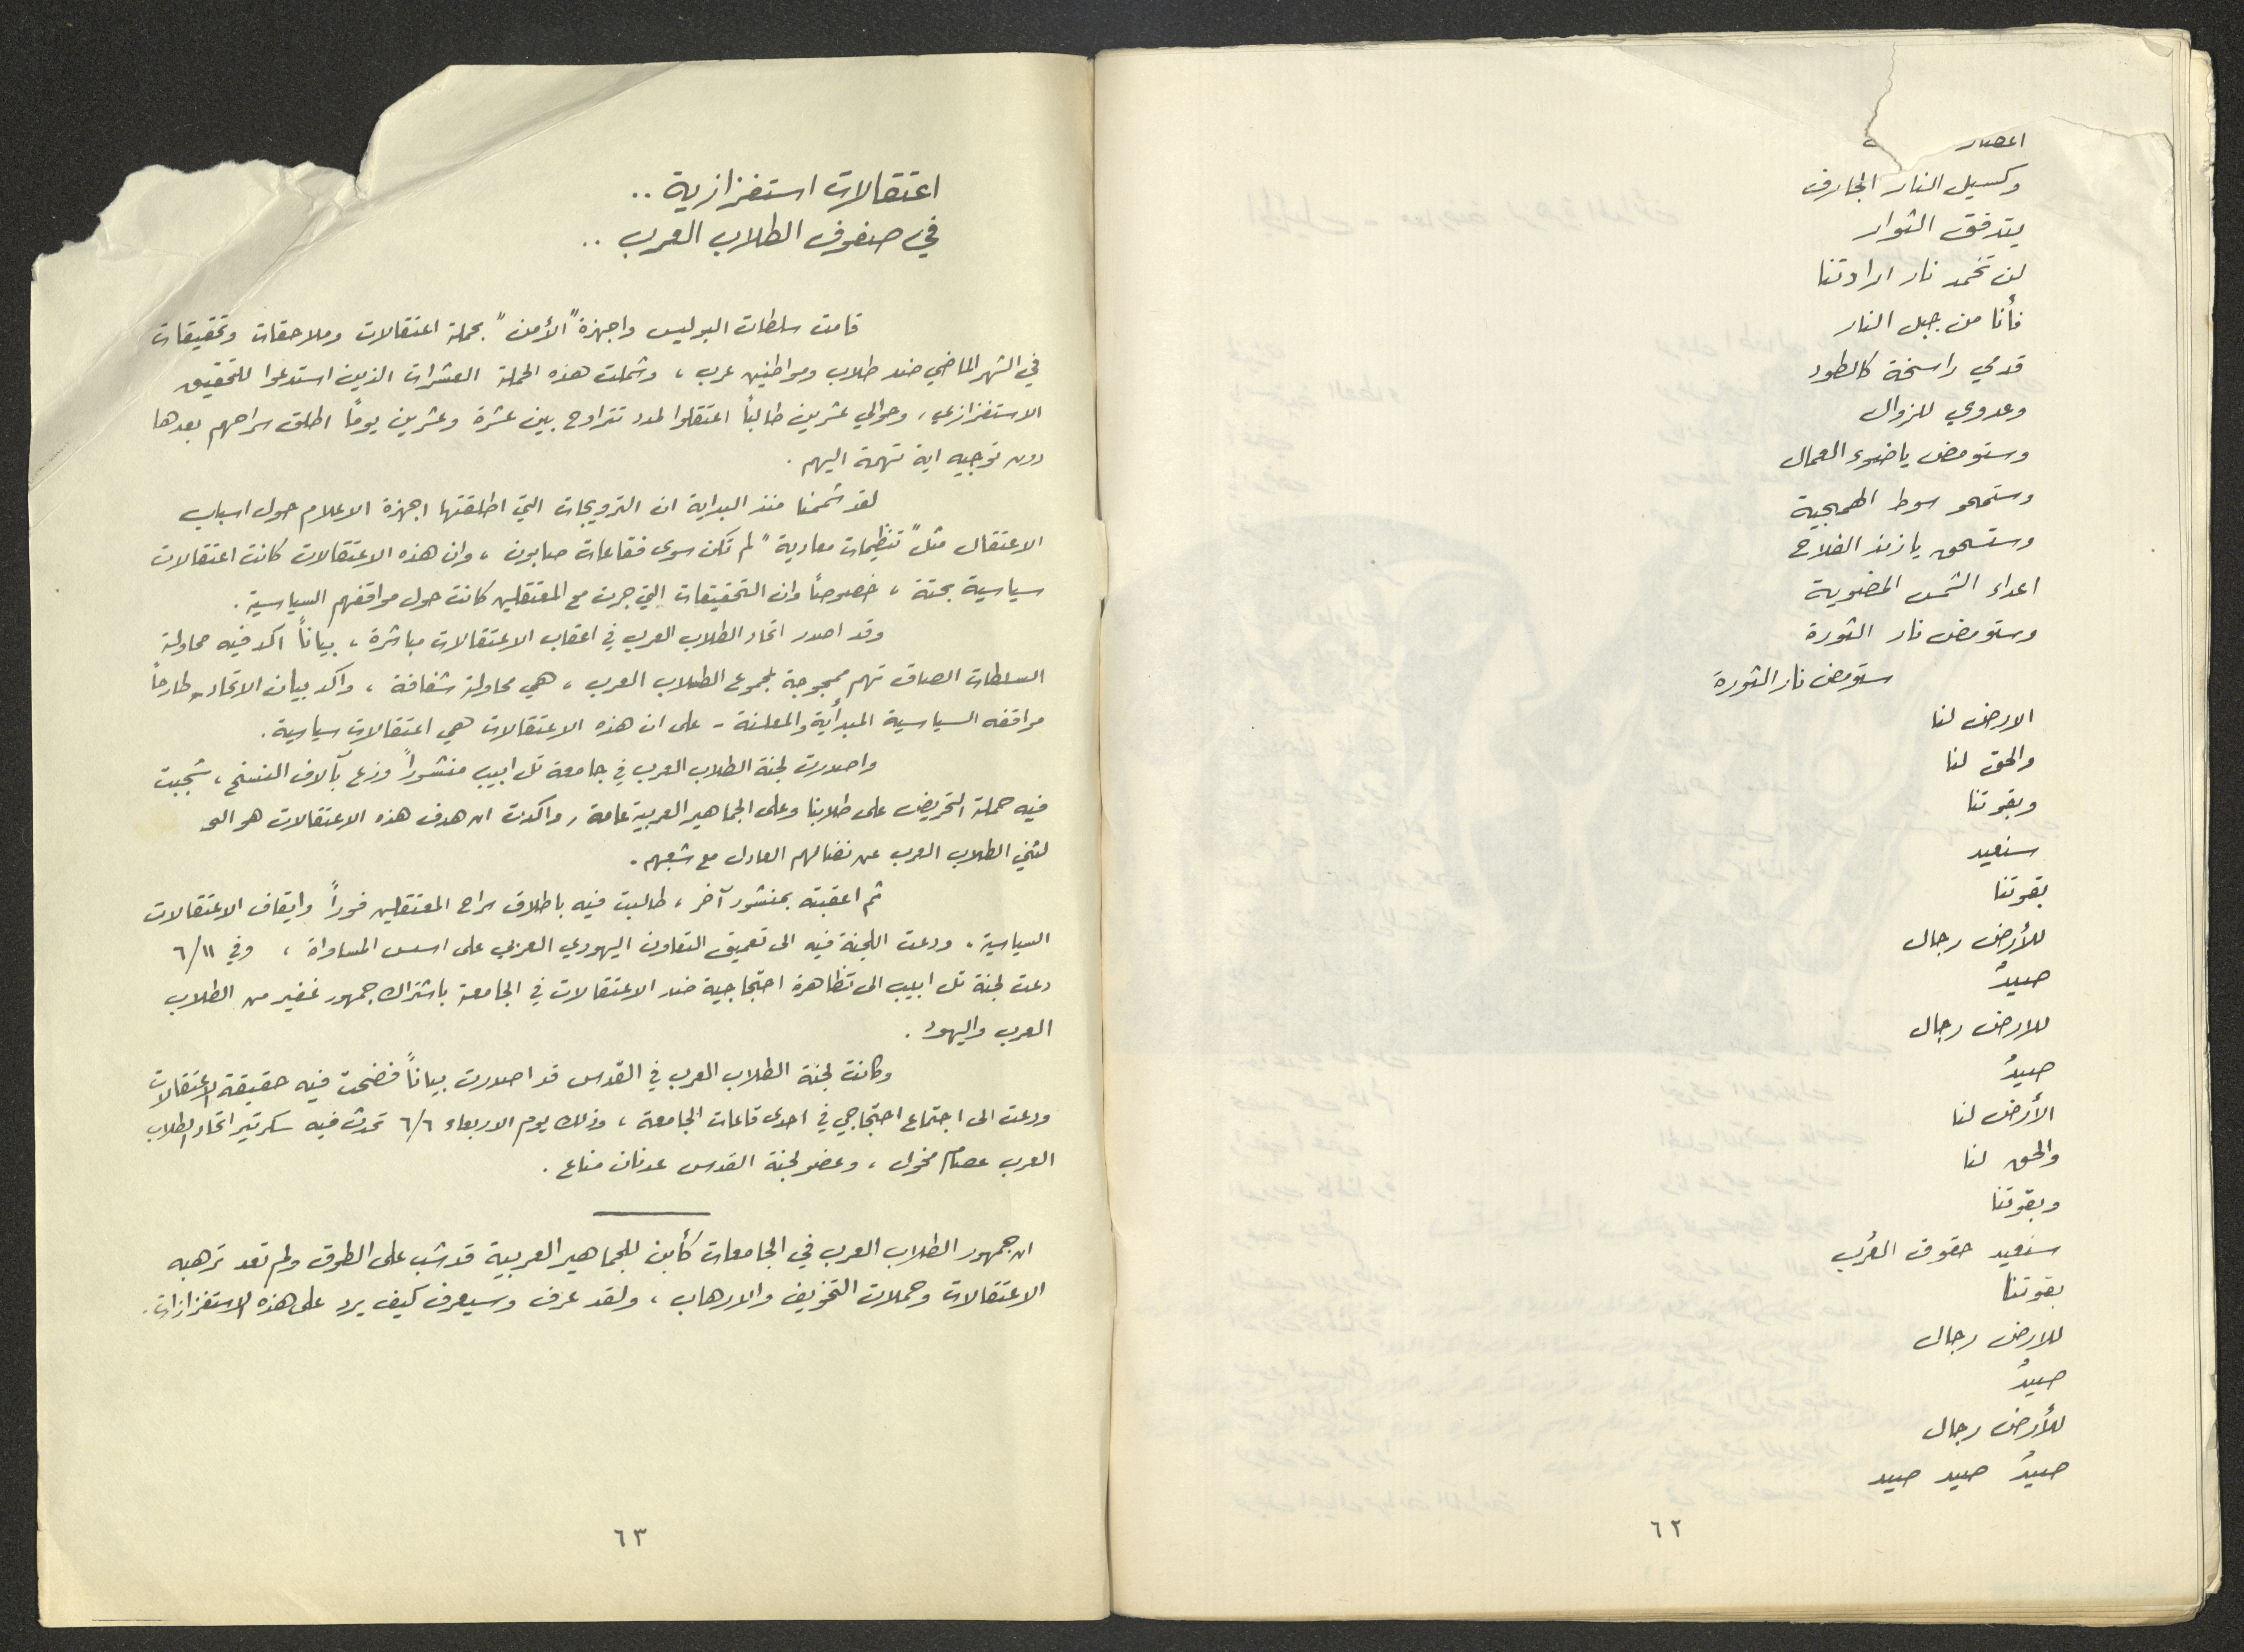 اعصار
وكسيل النار الجارف
يتدفق الثوار
لن تخمد نار ارادتنا
فأنا من جبل النار
قدمي راسخة كالطود
وعدوي للزوال
وستومض يا ضوء العمال
وستمحو سوط الهمجية
وستسحق يا زند الفلاح
اعداء الشمس المضوية
وستومض نار الثورة
ستومض نار الثورة
الارض لنا
والحق لنا
وبقوتنا
سنعيد
بقوتنا
للأرض رجال
صيدٌ
للارض رجال
صيدٌ
الأرض لنا
والحق لنا
وبقوتنا
سنعيد حقوق العُرب
بقوتنا
للارض رجال
صيدٌ
للأرض رجال
صيدٌ صيد صيد
٦٢
اعتقالات استفزازية ..
في صفوف الطلاب العرب ..
قامت سلطات البوليس واجهزة "الأمن" بحملة اعتقالات وملاحقات وتحقيقات
في الشهر الماضي ضد طلاب ومواطنين عرب، وشملت هذه الحملة العشرات الذين استدعوا للتحقيق
الاستفزازي، وحوالي عشرين طالباً اعتقلوا لمدد تتراوح بين عشرة وعشرين يوماً اطلق سراحهم بعدها
دون توجيه اية تهمة اليهم.
لقد شممنا منذ البداية ان الترويجات التي اطلقتها اجهزة الاعلام حول اسباب
الاعتقال مثل "تنظيمات معادية" لم تكن سوى فقاعات صابون، وان هذه الاعتقالات كانت اعتقالات
سياسية بحتة، خصوصاً وان التحقيقات التي جرت مع المعتقلين كانت حول مواقفهم السياسية.
وقد اصدر اتحاد الطلاب العرب في اعقاب الاعتقالات مباشرة، بياناً اكد فيه محاولة
السلطات الصاق تهم ممجوجة بجموع الطلاب العرب، هي محاولة شفافة، واكد بيان الاتحاد - طارحاً
مواقفه السياسية المبدأية والمعلنة - على ان هذه الاعتقالات هي اعتقالات سياسية.
واصدرت لجنة الطلاب العرب في جامعة تل ابيب منشوراً وزع بآلاف النسخ، شجبت
فيه حملة التحريض على طلابنا وعلى الجماهير العربية عامة، واكدت ان هدف هذه الاعتقالات هو
لثني الطلاب العرب عن نضالهم العادل مع شعبهم.
ثم اعقبته بمنشور آخر، طالبت فيه باطلاق سراح المعتقلين فوراً وايقاف الاعتقالات
السياسية. ودعت اللجنة فيه الى تعميق التعاون اليهودي العربي على اسس المساواة، وفي ٦/١١
دعت لجنة تل ابيب الى تظاهرة احتجاجية ضد الاعتقالات في الجامعة باشتراك جمهور غفير من الطلاب
العرب واليهود.
وكانت لجنة الطلاب العرب في القدس قد اصدرت بياناً فضحت فيه حقيقة الاعتقالات
ودعت الى اجتماع احتجاجي في احدى قاعات الجامعة، وذلك يوم الاربعاء ٦/٦ تحدث فيه سكرتير اتحاد الطلاب
العرب عصام مخول، وعضو لجنة القدس عدنان مناع.
ان جمهور الطلاب العرب في الجامعات كأبن للجماهير العربية قد شب على الطوق ولم تعد ترهبه
الاعتقالات وحملات التخويف والارهاب، ولقد عرف وسيعرف كيف يرد على هذه الاستفزازات.
٦٣